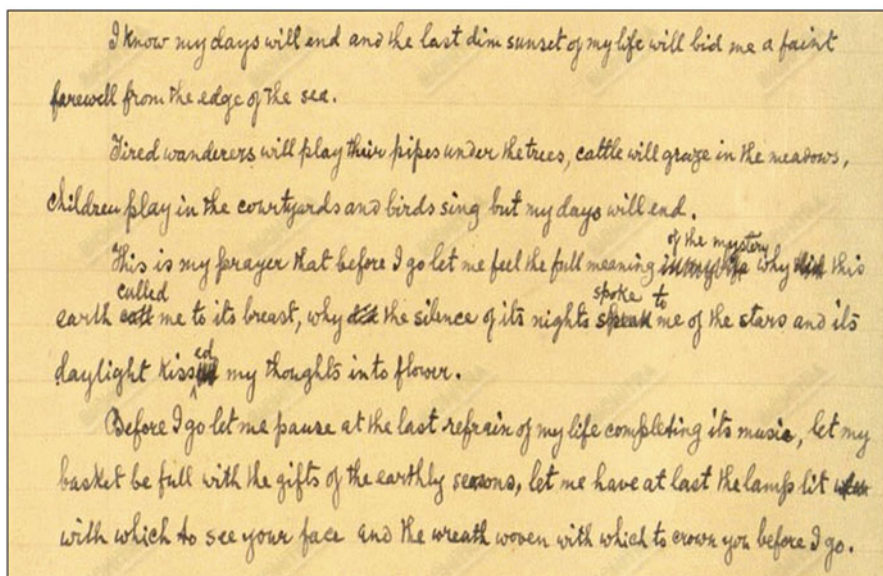 I know my days will end and the last dim sunset of my life will bid me a faint
farewell from the edge of the sea.
Tired wanderers will play their pipes under the trees, cattle will graze in the meadows,
children play in the courtyards and birds sing but my days will end.
of the mystery
This is my prayer that before I go let me feel the full meaning why did this
called spoke to
earth call me to its breast, why did the silence of its nights speak me of the stars and its
ed
daylight kiss my thoughts into flower.
Before I go let me pause at the last refrain of my life completing its music, let my
basket be full with the gifts of the earthly seasons, let me have at last the lamp lit
with which to see your face and the wreath woven with which to crown you before I go.